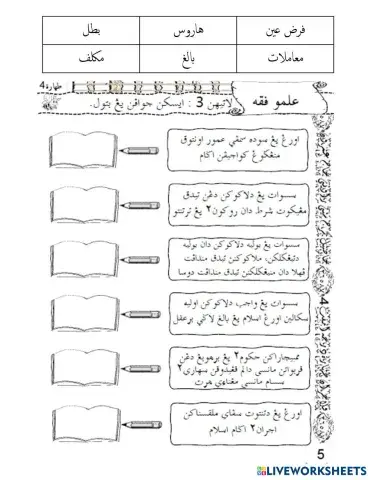 فرض عين هاروس بطل
معاملات بالغ مكلف
علمو فقه
لاتيهن 3 : ايسكن جوابن يڠ بتول.
طهارة 4
اورڠ يڠ سوده سمڤي عمور اونتوق
منڠݢوڠ كواجيڤن اݢام
سسوات يڠ دلاكوكن دڠن تيدق
مڠيكوت شرط دان روكون٢ يڠ ترتنتو
سسوات يڠ بوليه دلاكوكن دان بوليه
دتيڠݢلكن، ملاكوكنڽ تيدق منداڤت
ڤهلا دان منيڠݢلكنڽ تيدق منداڤت دوسا
سسوات يڠ واجب دلاكوكن اوليه
سكالين اورڠ اسلام يڠ بالغ لاݢي برعقل
ممبيچاراكن حكوم٢ يڠ برهوبوڠ دڠن
ڤربواتن مانسي دالم ڤڠهيدوڤن سهاري٢
سسام مانسي
اورڠ يڠ دتونتوت سڤاي ملقساناكن
اجرن٢ اݢام اسلام
5
LIVEWORKSHEETS